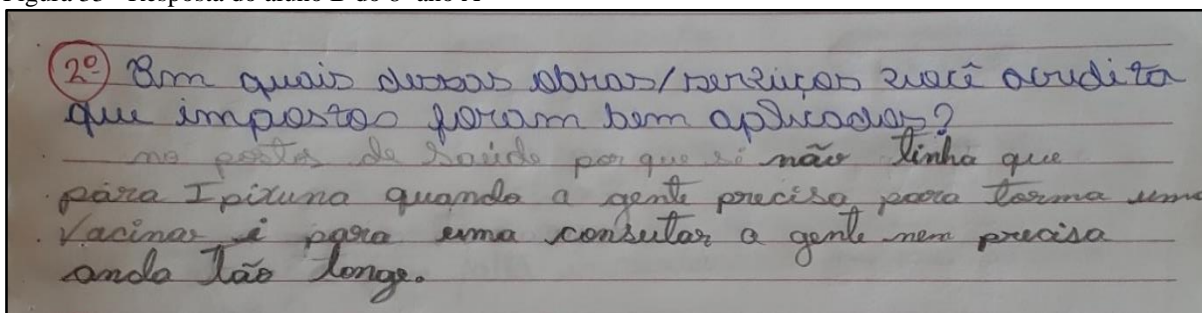 2º Em quais dessas obras/serviços você acredita
que impostos foram bem aplicados?
no postos de Saúde por que si não tinha que
pára Ipixuna quando a gente precisa para torma um
Vacinar é para uma consutar a gente nem precisa
anda tão longe.